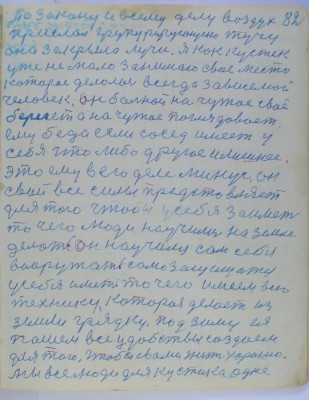 По закону и всему делу воздух 82
прислал групирующую тучу
она закрыла лучи. Я как кустек
уже не мало занимаю своё место
которое делалося всегда зависемой
человек. он болной на чужое своё
берегет а на чужое поглядоваеть
ему беда если сосед имееть у
себя что либо другое и лишнее.
это ему в его деле минус. он
свои все силы представляеть
для того чтобы у себя заиметь
то чего люди научились на земле
делать. он научился сам себя
вооружать самозащищать
у себя иметь то чего имеем всю
технику, которая делает из
земли грядку. под зиму ея
пашем все удобствы создаем
для того, чтобы с вами жить хорошо.
мы все люди для кустика одне